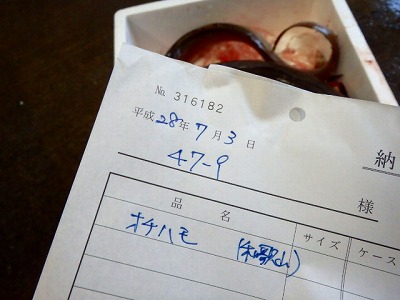 № 316182
平成 28年 7月 3日
47-9
納
様
品名 サイズ ケース
オチハモ (和歌山)